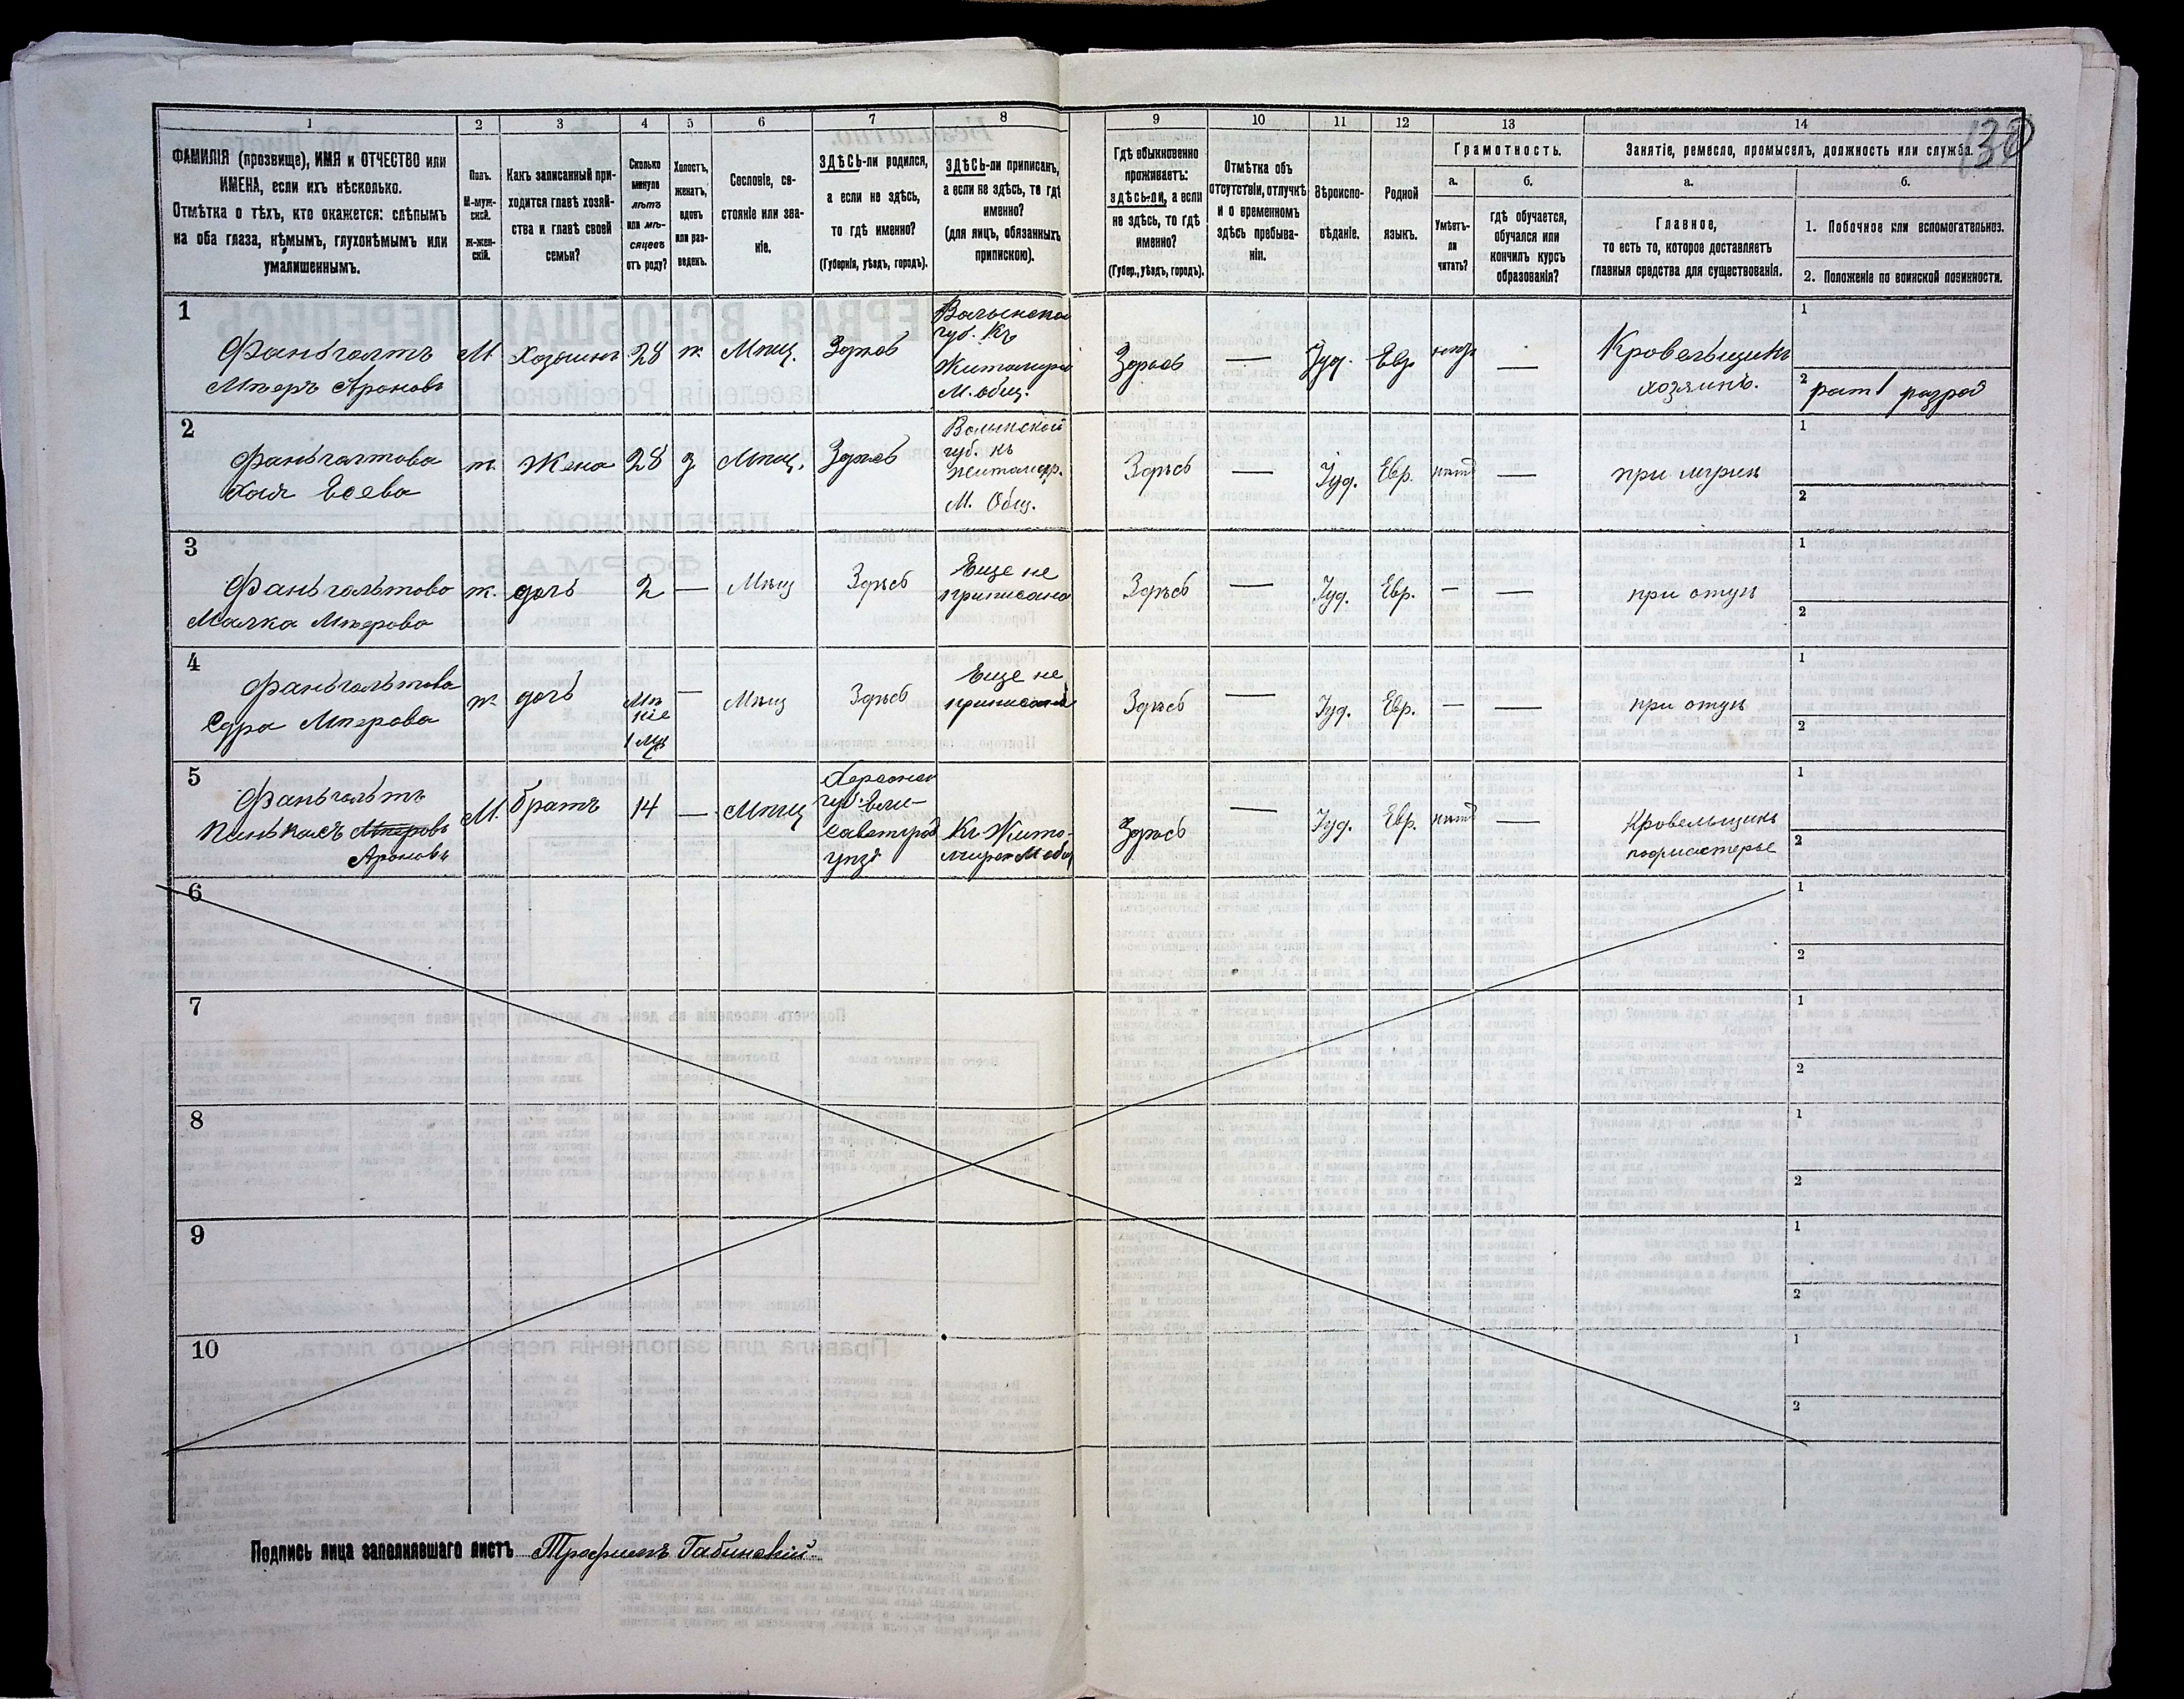 1 2 3 4 5 6 7 8 9 10 11 12 13 14
130
ФАМИЛІЯ (прозвище), ИМЯ и ОТЧЕСТВО или
ИМЕНА, если ихъ нѣсколько.
Отмѣтка о тѣхъ, кто окажется: слѣпымъ
на оба глаза, нѣмымъ, глухонѣмымъ или
умалишеннымъ.
Полъ.
М-муж-
ской.
ж-жен-
скій.
Какъ записанный при-
ходится главѣ хозяй-
ства и главѣ своей
семьи?
Сколько
минуло
лѣтъ
или мѣ-
сяцевъ
отъ роду?
Холостъ,
женатъ,
вдовъ
или раз-
веденъ.
Сословіе, со-
стояніе или зва-
ніе.
ЗДѢСЬ-ли родился,
а если не здѣсь,
то гдѣ именно?
(Губернія, уѣздъ, городъ).
ЗДѢСЬ-ли приписанъ,
а если не здѣсь, то гдѣ
именно?
(для лицъ, обязанныхъ
припискою).
Гдѣ обыкновенно
проживаетъ:
здѣсь-ли, а если
не здѣсь, то гдѣ
именно?
(Губер., уѣздъ, городъ).
Отмѣтка объ
отсутствіи, отлучкѣ
и о временномъ
здѣсь пребыва-
ніи.
Вѣроиспо-
вѣданіе.
Родной
языкъ.
Грамотность.
а.
Умѣетъ-
ли
читать?
б.
гдѣ обучается,
обучался или
кончилъ курсъ
образованія?
Занятіе, ремесло, промыселъ, должность или служба.
а.
Главное,
то есть то, которое доставляетъ
главныя средства для существованія.
б.
1. Побочное или вспомогательное.
2. Положеніе по воинской повинности.
1
Фаньгольтъ
Мееръ Ароновъ
М.
Хозяинъ
28
ж
Мѣщ.
Здѣсь
Волынской
губ. Къ
Житомирс
М. общ.
Здѣсь
—
Іуд.
Евр
—
Кровельщикъ
хозяинъ.
1
2
рат 1 разряд
2
Фаньгольтова
Хая
ж.
Жена
28
з
Мѣщ.
Здѣсь
Волынской
губ. къ
Житомир.
М. Общ.
Здѣсь
—
Іуд.
Евр.
нѣтъ
—
при мужѣ
1
2
3
Фаньгольтова
Малка Мѣерова
ж.
дочь
2
—
Мѣщ
Здѣсь
Еще не
приписана
Здѣсь
—
Іуд.
Евр.
—
—
при отцѣ
1
2
4
Фаньгольтова
Сура Мѣерова
ж
дочь
1 мѣс
—
Мѣщ
Здѣсь
Еще не
приписана
Здѣсь
—
Іуд.
Евр.
—
—
при отцѣ
1
2
5
Фаньгольтъ
Пинькасъ Мѣеровъ
Ароновъ
М.
братъ
14
—
Мѣщ
Херсонск
губ. Ели-
саветград
уѣзд
Къ Жито-
мирск М общ
Здѣсь
—
Іуд.
Евр.
нѣтъ
—
Кровельщикъ
подмастерье
1
2
6
1
2
7
1
2
8
1
2
9
1
2
10
1
2
Подпись лица заполнявшаго листъ Трофимъ Габинскій